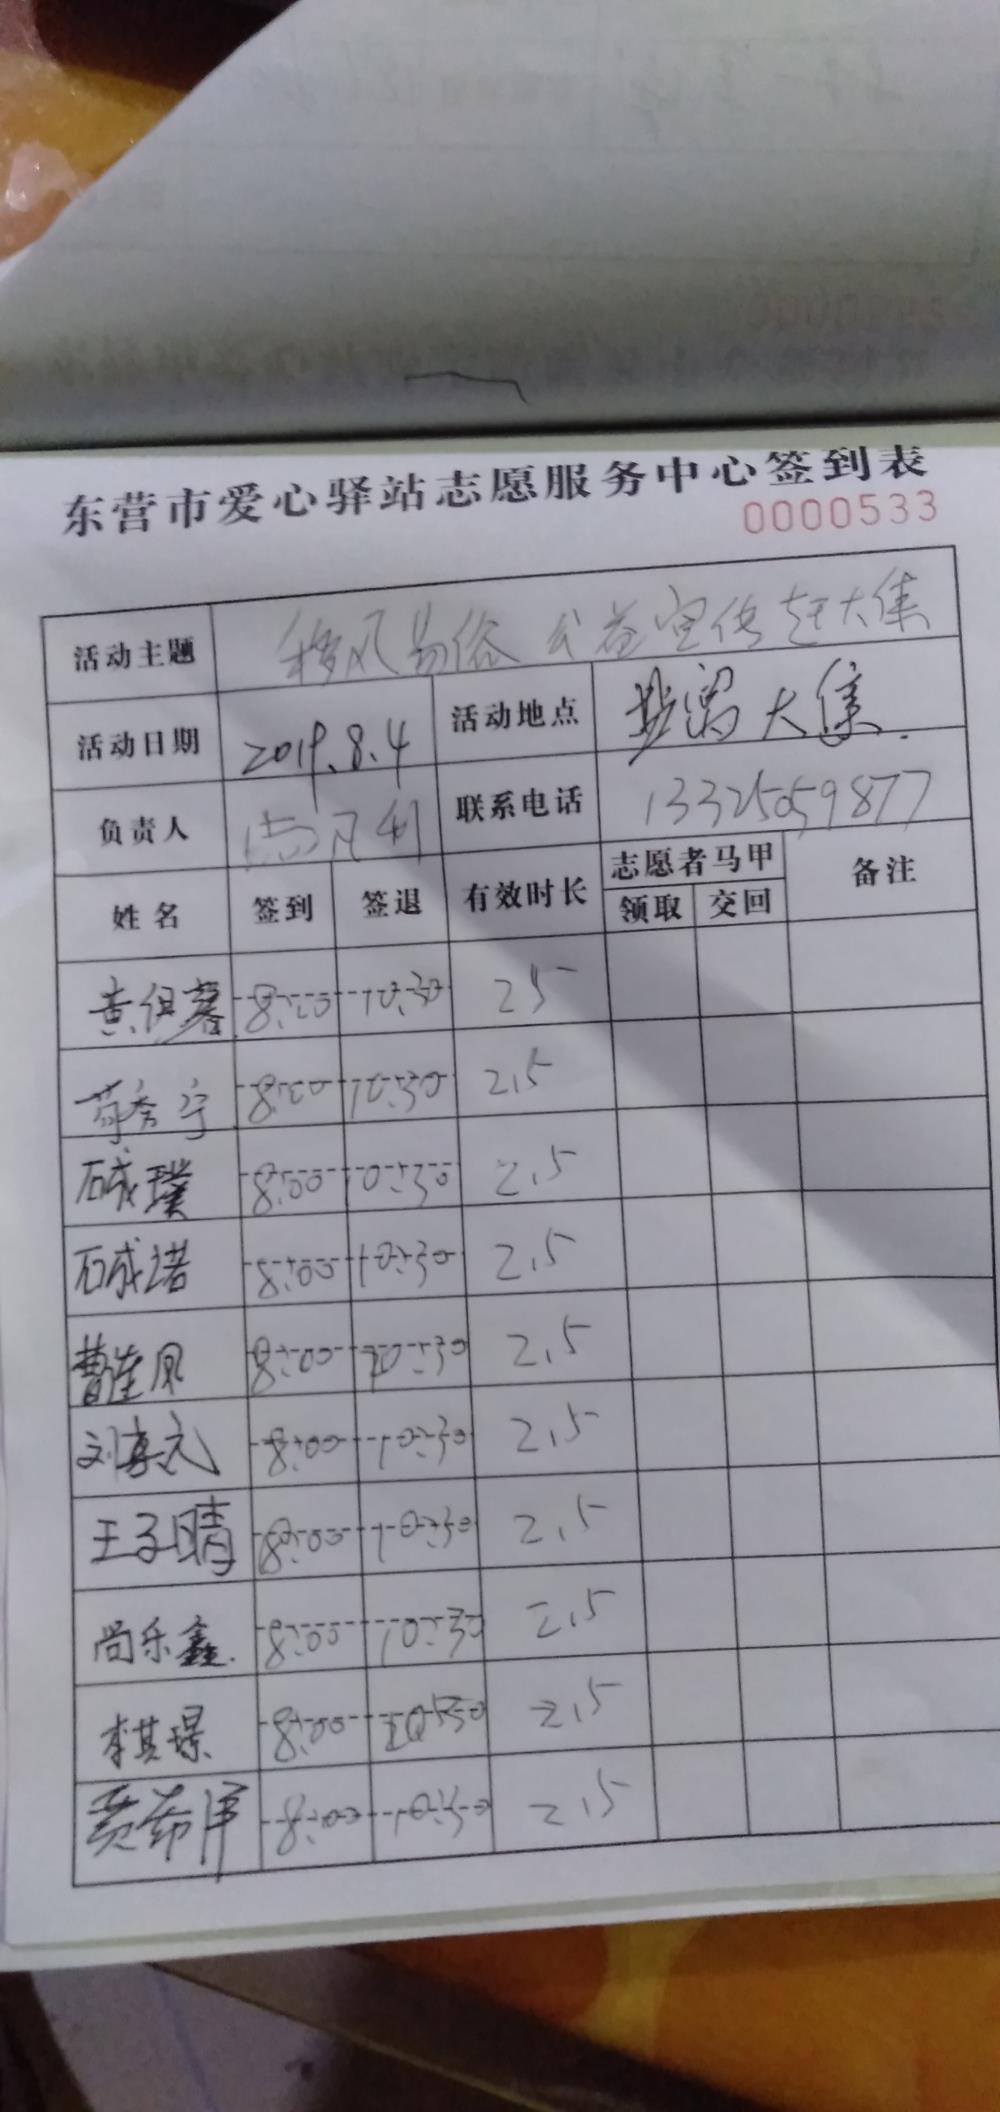 东营市爱心驿站志愿服务中心签到表
0000533
活动主题 移风易俗 公益宣传赶大集
活动日期 2019.8.4 活动地点 盐窝大集
负责人 联系电话 13325059877
姓名 签到 签退 有效时长 志愿者马甲 领取 交回 备注
8:00 10:30 25
8:00 10:30 2.5
石成璞 8:00 10:30 2.5
石成诺 8:00 10:30 2.5
曹莲凤 8:00 10:30 2.5
刘真元 8:00 10:30 2.5
王子晴 8:00 10:30 2.5
尚乐鑫 8:00 10:30 2.5
李其璟 8:00 10:30 2.5
贾希泽 8:00 10:30 2.5